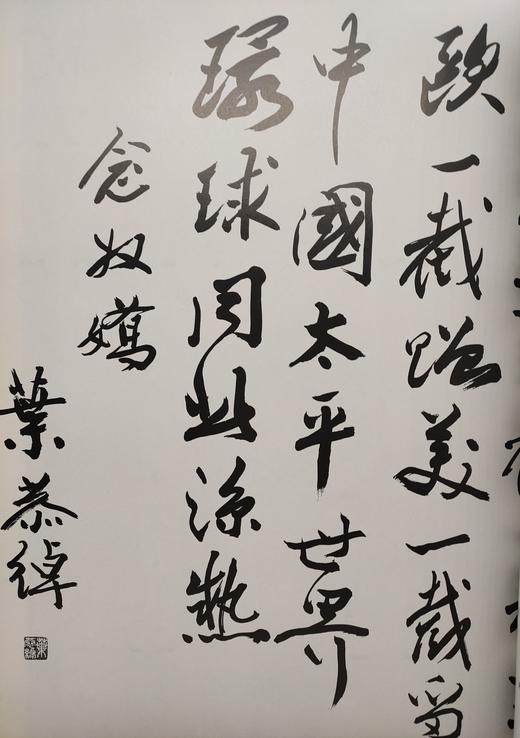 歐一截贈美一截留
中國太平世界
環球同此涼熱
念奴嬌
葉恭綽